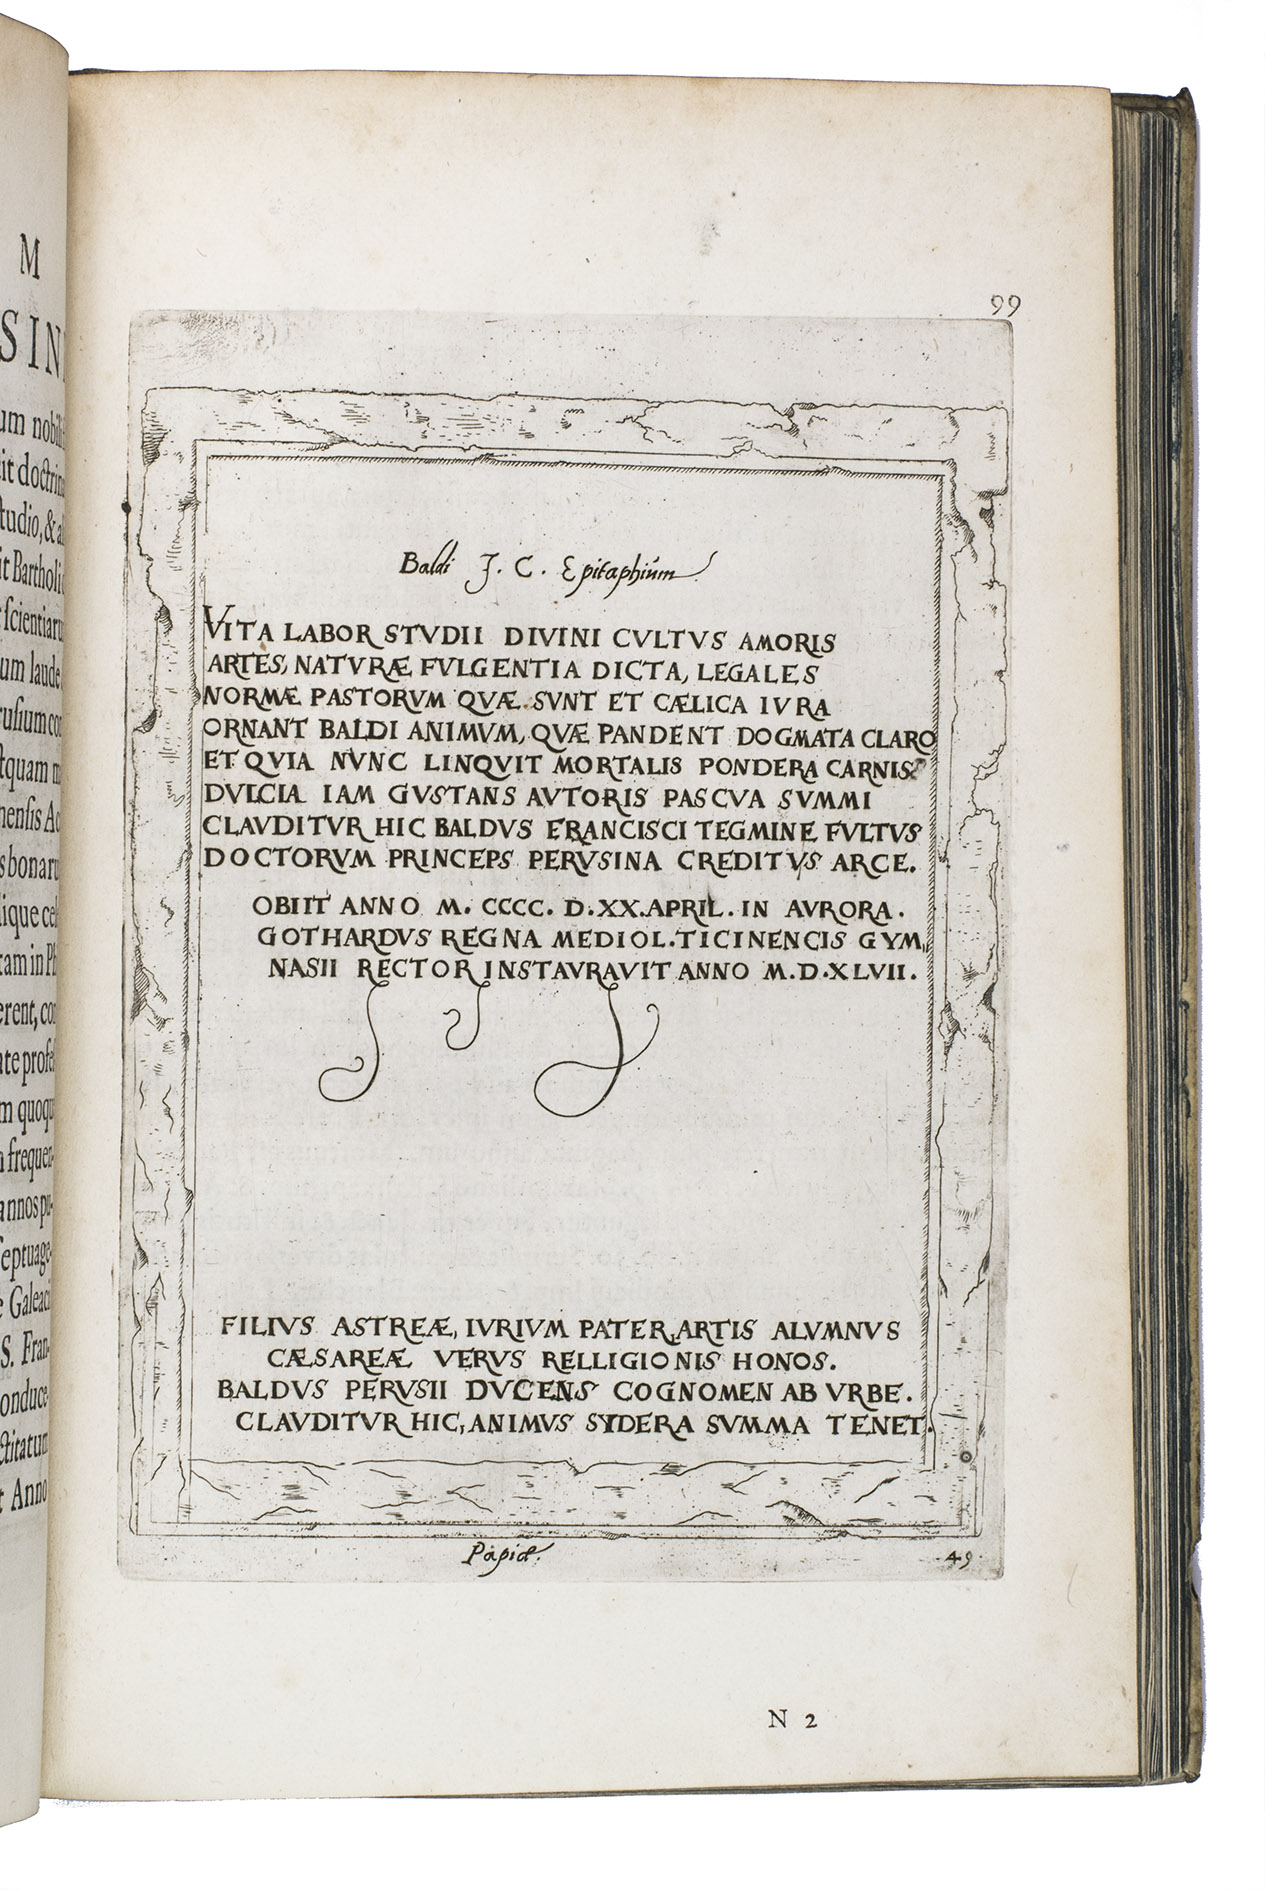 M
SIN
um nobili
it doctrin
tudio, & a
it Bartholi
scientiaru
um laude
rusium co
tquam m
nensis Ac
s bonaru
lique cel
tam in Ph
erent, con
te profes
m quoqu
frequen-
annos pu-
septuage-
e Galeaci
S. Fran-
onduce-
ctitatum
t Anno
99
Baldi J. C. Epitaphium
VITA LABOR STVDII DIVINI CVLTVS AMORIS
ARTES, NATVRÆ FVLGENTIA DICTA, LEGALES
NORMÆ PASTORVM QVÆ SVNT ET CÆLICA IVRA
ORNANT BALDI ANIMVM, QVÆ PANDENT DOGMATA CLARO
ET QVIA NVNC LINQVIT MORTALIS PONDERA CARNIS
DVLCIA IAM GVSTANS AVTORIS PASCVA SVMMI
CLAVDITVR HIC BALDVS FRANCISCI TEGMINE FVLTVS
DOCTORVM PRINCEPS PERVSINA CREDITVS ARCE.
OBIIT ANNO M. CCCC. D. XX. APRIL. IN AVRORA.
GOTHARDVS REGNA MEDIOL. TICINENCIS GYM,
NASII RECTOR INSTAVRAVIT ANNO M.D.XLVII.
FILIVS ASTREÆ, IVRIVM PATER, ARTIS ALVMNVS
CÆSAREÆ VERVS RELLIGIONIS HONOS.
BALDVS PERVSII DVCENS COGNOMEN AB VRBE.
CLAVDITVR HIC, ANIMVS SYDERA SVMMA TENET.
Papiæ.
.49.
N 2